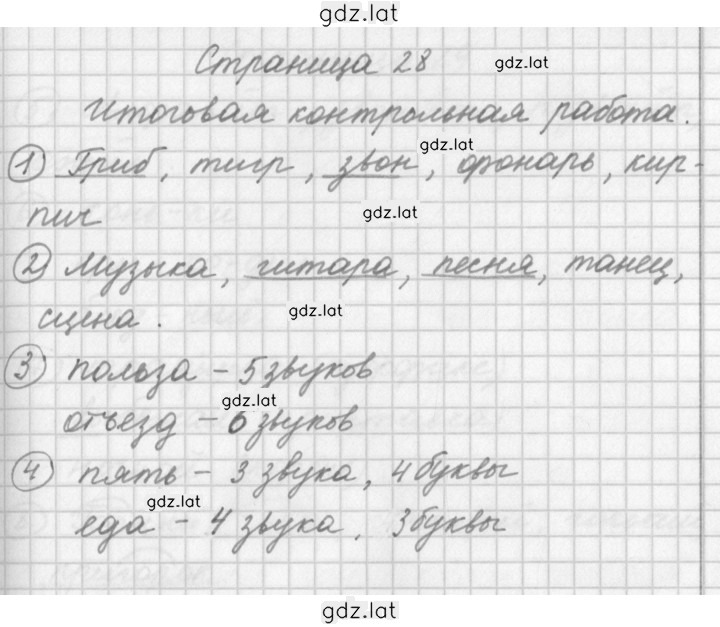 gdz.lat
Страница 28
gdz.lat
Итоговая контрольная работа.
gdz.lat
1 Гриб, тигр, звон, фонарь, кир-
пич
gdz.lat
2 Музыка, гитара, песня, танец,
сцена.
gdz.lat
3 польза - 5 звуков
gdz.lat
отъезд - 6 звуков
4 пять - 3 звука, 4 буквы
gdz.lat
еда - 4 звука, 3 буквы
gdz.lat